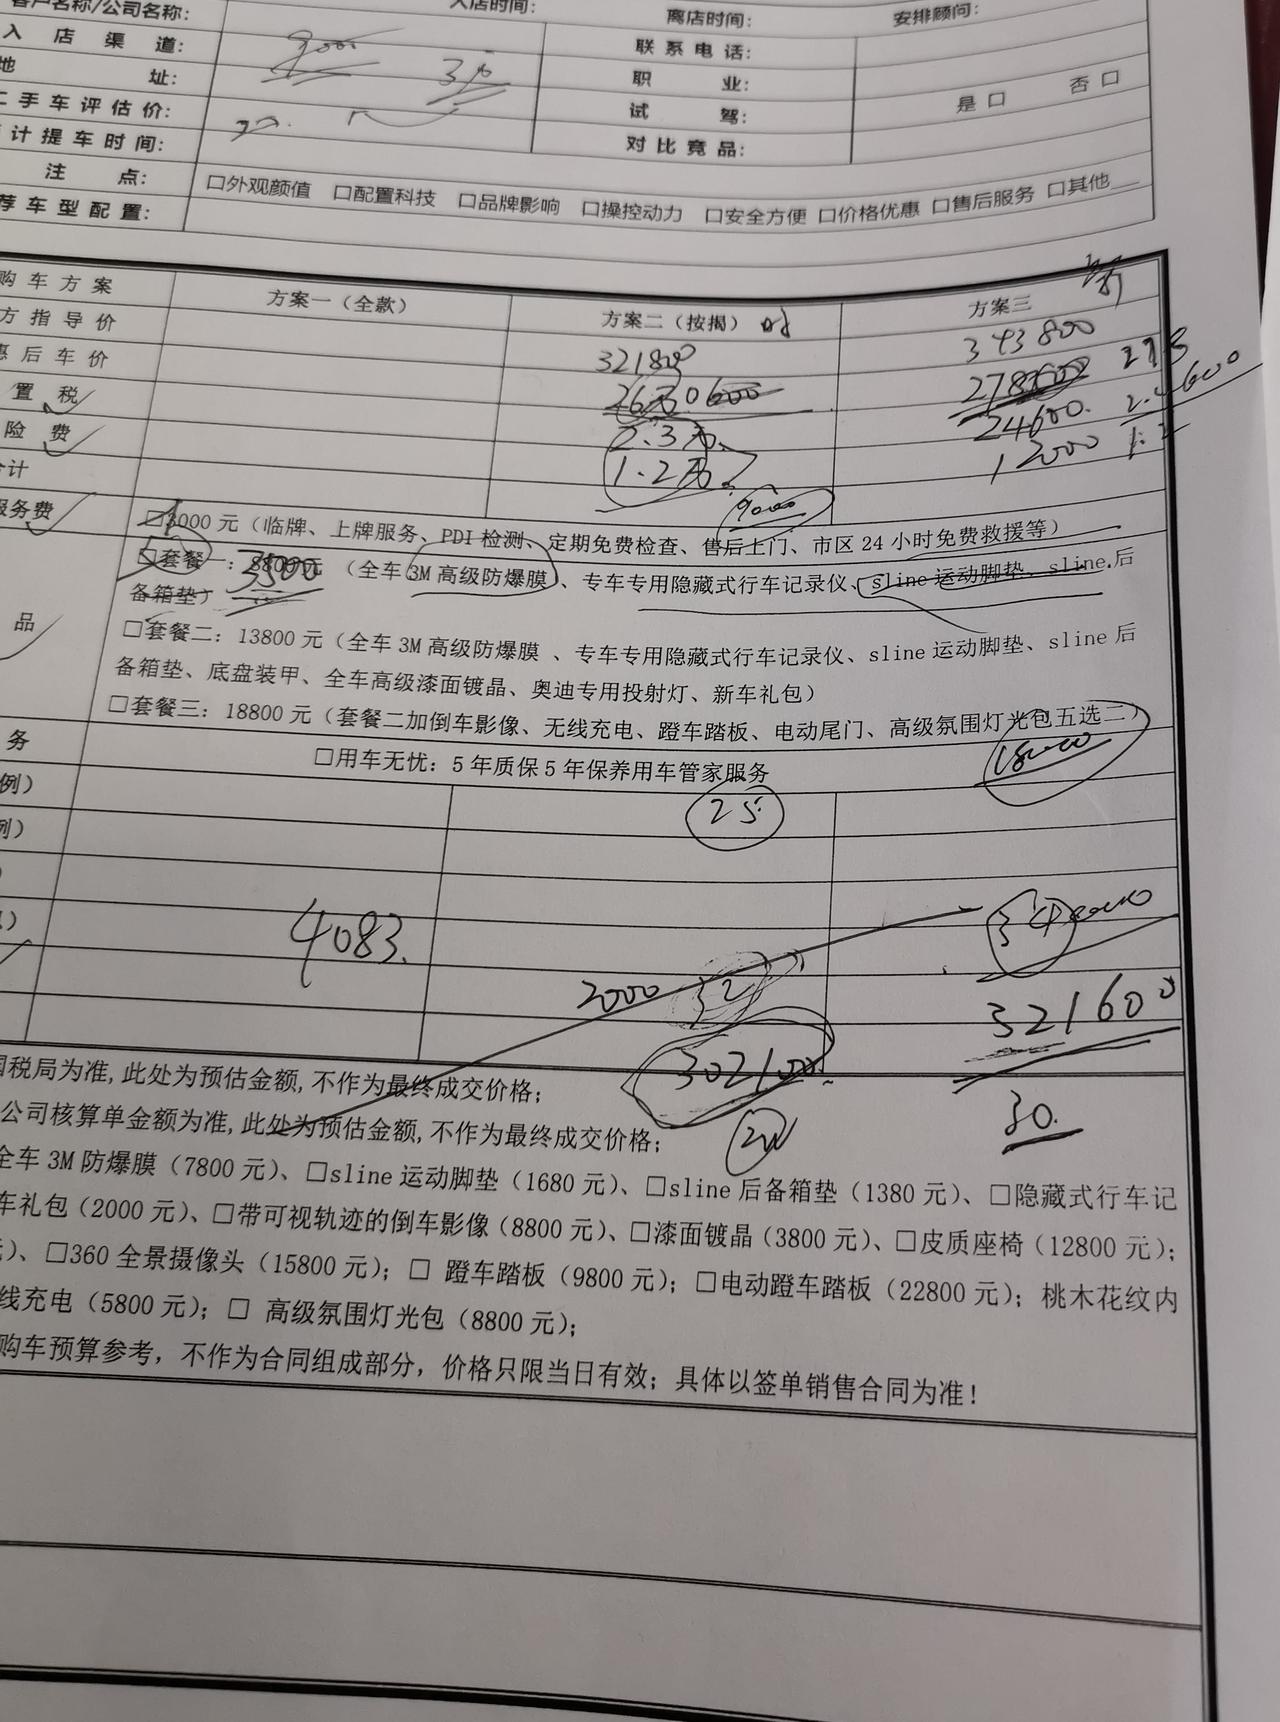 客户名称/公司名称: 入店时间: 离店时间: 安排顾问:
入店渠道: 9000 联系电话:
地址: 职业:
二手车评估价: 试驾: 是□ 否□
计提车时间: 对比竞品:
注点: □外观颜值 □配置科技 □品牌影响 □操控动力 □安全方便 □价格优惠 □售后服务 □其他
荐车型配置:
购车方案 方案一(全款) 方案二(按揭) 方案三
方指导价 321800 343800
惠后车价 278
置税 2.3万 24600.
险费 1.2万 12000 1.2
合计
服务费 □3000元(临牌、上牌服务、PDI检测、定期免费检查、售后上门、市区24小时免费救援等) 9000
□套餐一: 8800元 3500 (全车3M高级防爆膜、专车专用隐藏式行车记录仪、sline运动脚垫、sline后
备箱垫)
品 □套餐二: 13800元(全车3M高级防爆膜、专车专用隐藏式行车记录仪、sline运动脚垫、sline后
备箱垫、底盘装甲、全车高级漆面镀晶、奥迪专用投射灯、新车礼包)
□套餐三: 18800元(套餐二加倒车影像、无线充电、蹬车踏板、电动尾门、高级氛围灯光包五选二)
务 □用车无忧: 5年质保5年保养用车管家服务 18000
例) 25
例)
)
) 4083.
2000 32
302100. 321600
国税局为准,此处为预估金额,不作为最终成交价格; 30.
公司核算单金额为准,此处为预估金额,不作为最终成交价格; 2W
全车3M防爆膜(7800元)、□sline运动脚垫(1680元)、□sline后备箱垫(1380元)、□隐藏式行车记
车礼包(2000元)、□带可视轨迹的倒车影像(8800元)、□漆面镀晶(3800元)、□皮质座椅(12800元);
元)、□360全景摄像头(15800元); □ 蹬车踏板(9800元); □电动蹬车踏板(22800元); 桃木花纹内
线充电(5800元); □ 高级氛围灯光包(8800元);
购车预算参考, 不作为合同组成部分, 价格只限当日有效; 具体以签单销售合同为准!